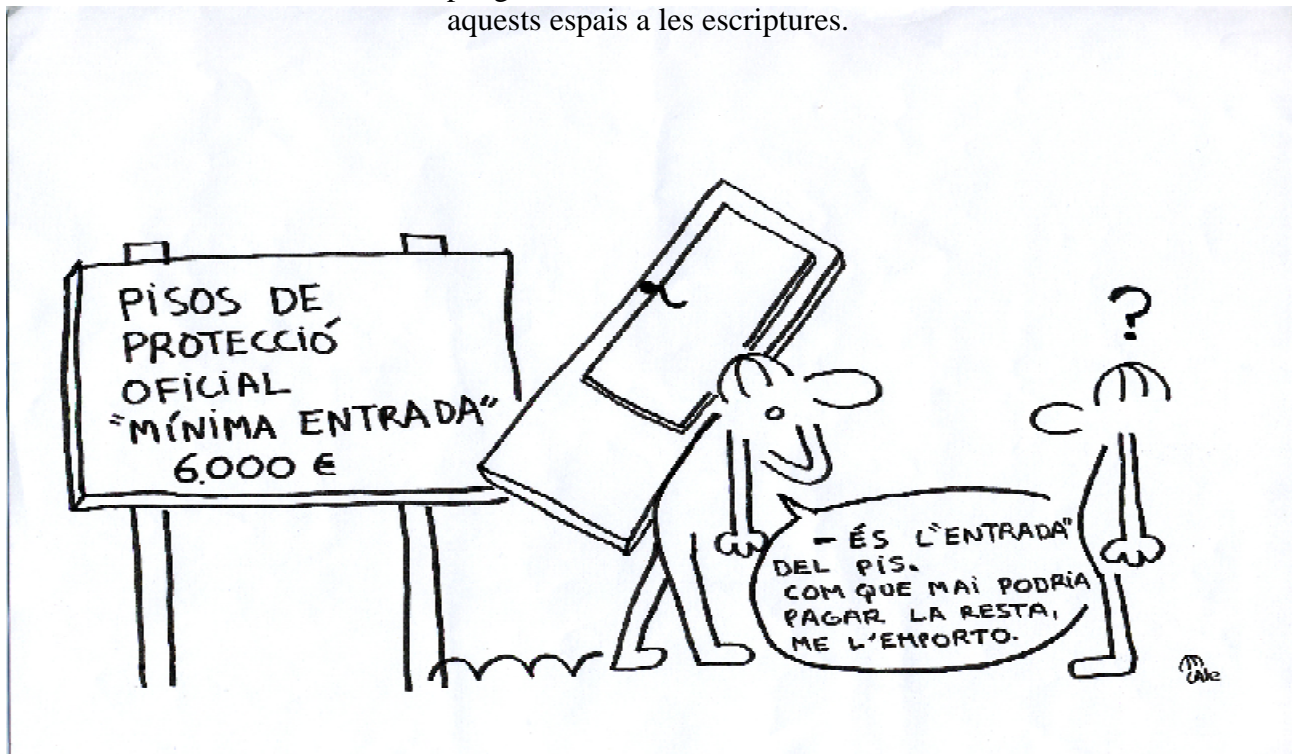 aquests espais a les escriptures.
PISOS DE
PROTECCIÓ
OFICIAL
"MÍNIMA ENTRADA"
6.000 €
?
- ÉS L'"ENTRADA"
DEL PIS.
COM QUE MAI PODRIA
PAGAR LA RESTA,
ME L'EMPORTO.